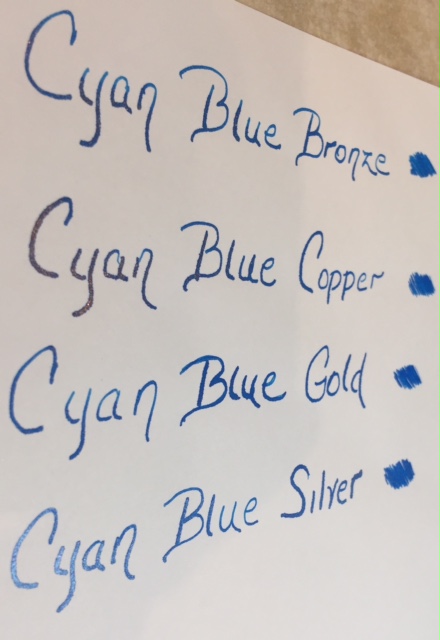 Cyan Blue Bronze
Cyan Blue Copper
Cyan Blue Gold
Cyan Blue Silver